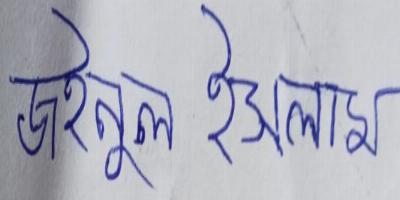 জইনুল ইসলাম